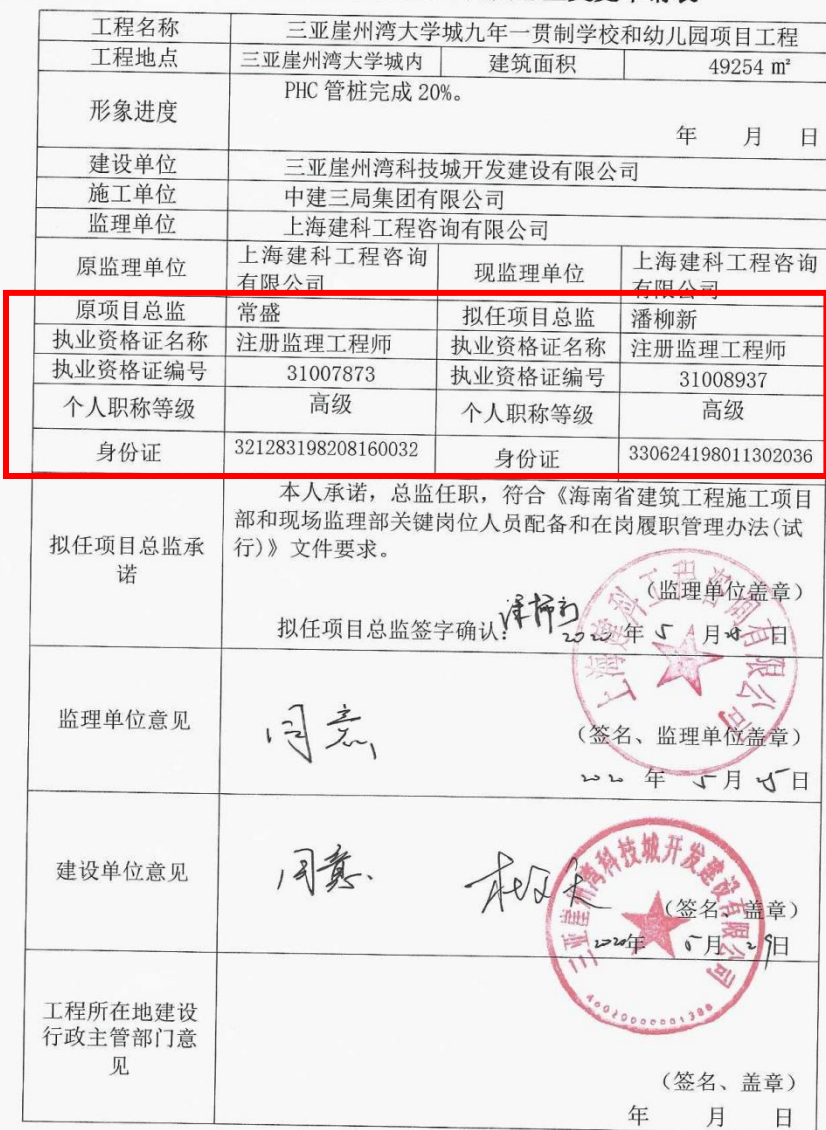 工程名称 三亚崖州湾大学城九年一贯制学校和幼儿园项目工程
工程地点 三亚崖州湾大学城内 建筑面积 49254 m²
形象进度 PHC 管桩完成 20%。
年 月 日
建设单位 三亚崖州湾科技城开发建设有限公司
施工单位 中建三局集团有限公司
监理单位 上海建科工程咨询有限公司
原监理单位 上海建科工程咨询 现监理单位 上海建科工程咨询
有限公司 有限公司
原项目总监 常盛 拟任项目总监 潘柳新
执业资格证名称 注册监理工程师 执业资格证名称 注册监理工程师
执业资格证编号 31007873 执业资格证编号 31008937
个人职称等级 高级 个人职称等级 高级
身份证 321283198208160032 身份证 330624198011302036
本人承诺，总监任职，符合《海南省建筑工程施工项目
部和现场监理部关键岗位人员配备和在岗履职管理办法(试
行)》文件要求。
拟任项目总监承
诺
（监理单位盖章）
拟任项目总监签字确认： 2020 年 5 月 日
上海建科工程咨询有限公司
监理单位意见 同意
（签名、监理单位盖章）
2020 年 5 月 25 日
建设单位意见 同意.
（签名、盖章）
2020年 5月 29日
三亚崖州湾科技城开发建设有限公司
工程所在地建设
行政主管部门意
见
（签名、盖章）
年 月 日